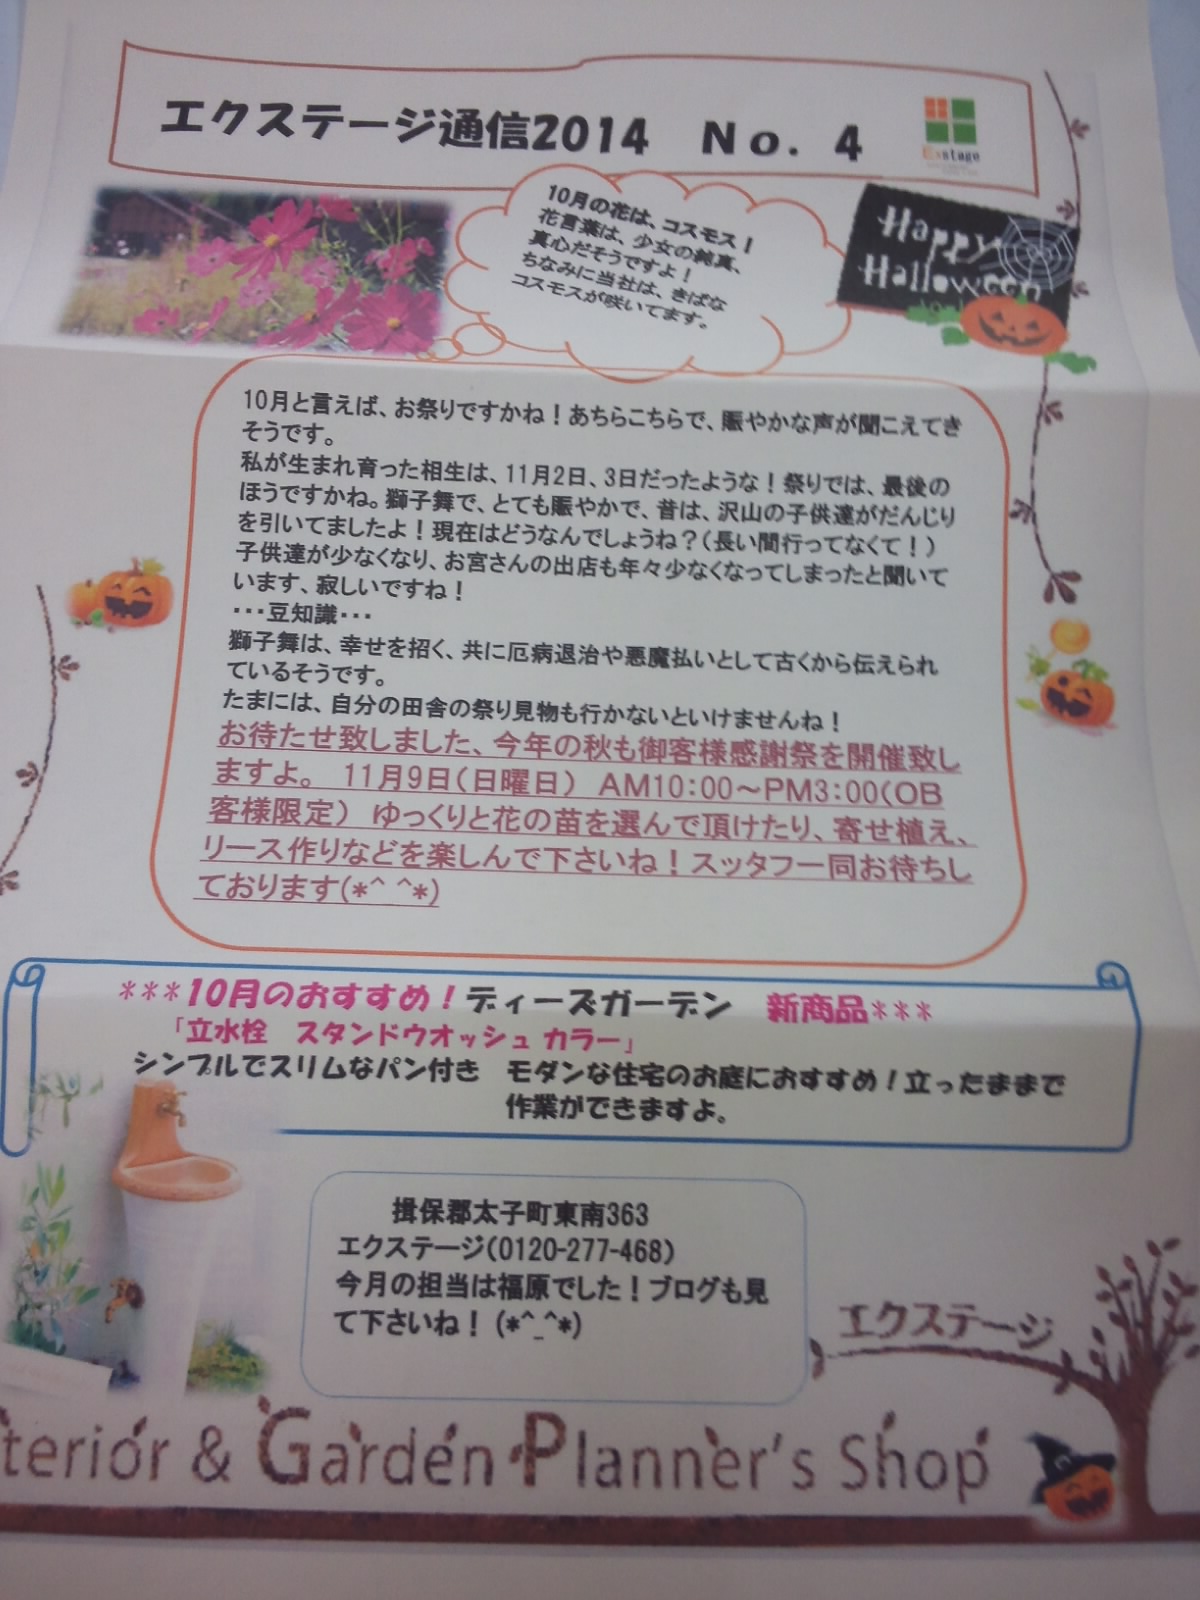 エクステージ通信2014　No. 4
Exstage
10月の花は、コスモス！
花言葉は、少女の純真、
真心だそうですよ！
ちなみに当社は、きばな
コスモスが咲いてます。
Happy
Halloween
10月と言えば、お祭りですかね！あちらこちらで、賑やかな声が聞こえてき
そうです。
私が生まれ育った相生は、11月2日、3日だったような！祭りでは、最後の
ほうですかね。獅子舞で、とても賑やかで、昔は、沢山の子供達がだんじり
を引いてましたよ！現在はどうなんでしょうね？（長い間行ってなくて！）
子供達が少なくなり、お宮さんの出店も年々少なくなってしまったと聞いて
います、寂しいですね！
・・・豆知識・・・
獅子舞は、幸せを招く、共に厄病退治や悪魔払いとして古くから伝えられ
ているそうです。
たまには、自分の田舎の祭り見物も行かないといけませんね！
お待たせ致しました、今年の秋も御客様感謝祭を開催致し
ますよ。　11月9日（日曜日）　AM10：00～PM3：00（OB
客様限定）　ゆっくりと花の苗を選んで頂けたり、寄せ植え、
リース作りなどを楽しんで下さいね！スッタフ一同お待ちし
ております(*^ ^*)
***10月のおすすめ！ディーズガーデン　新商品***
「立水栓　スタンドウオッシュ カラー」
シンプルでスリムなパン付き　モダンな住宅のお庭におすすめ！立ったままで
作業ができますよ。
揖保郡太子町東南363
エクステージ（0120-277-468）
今月の担当は福原でした！ブログも見
て下さいね！ (*^_^*)
エクステージ
terior & Garden Planner's Shop